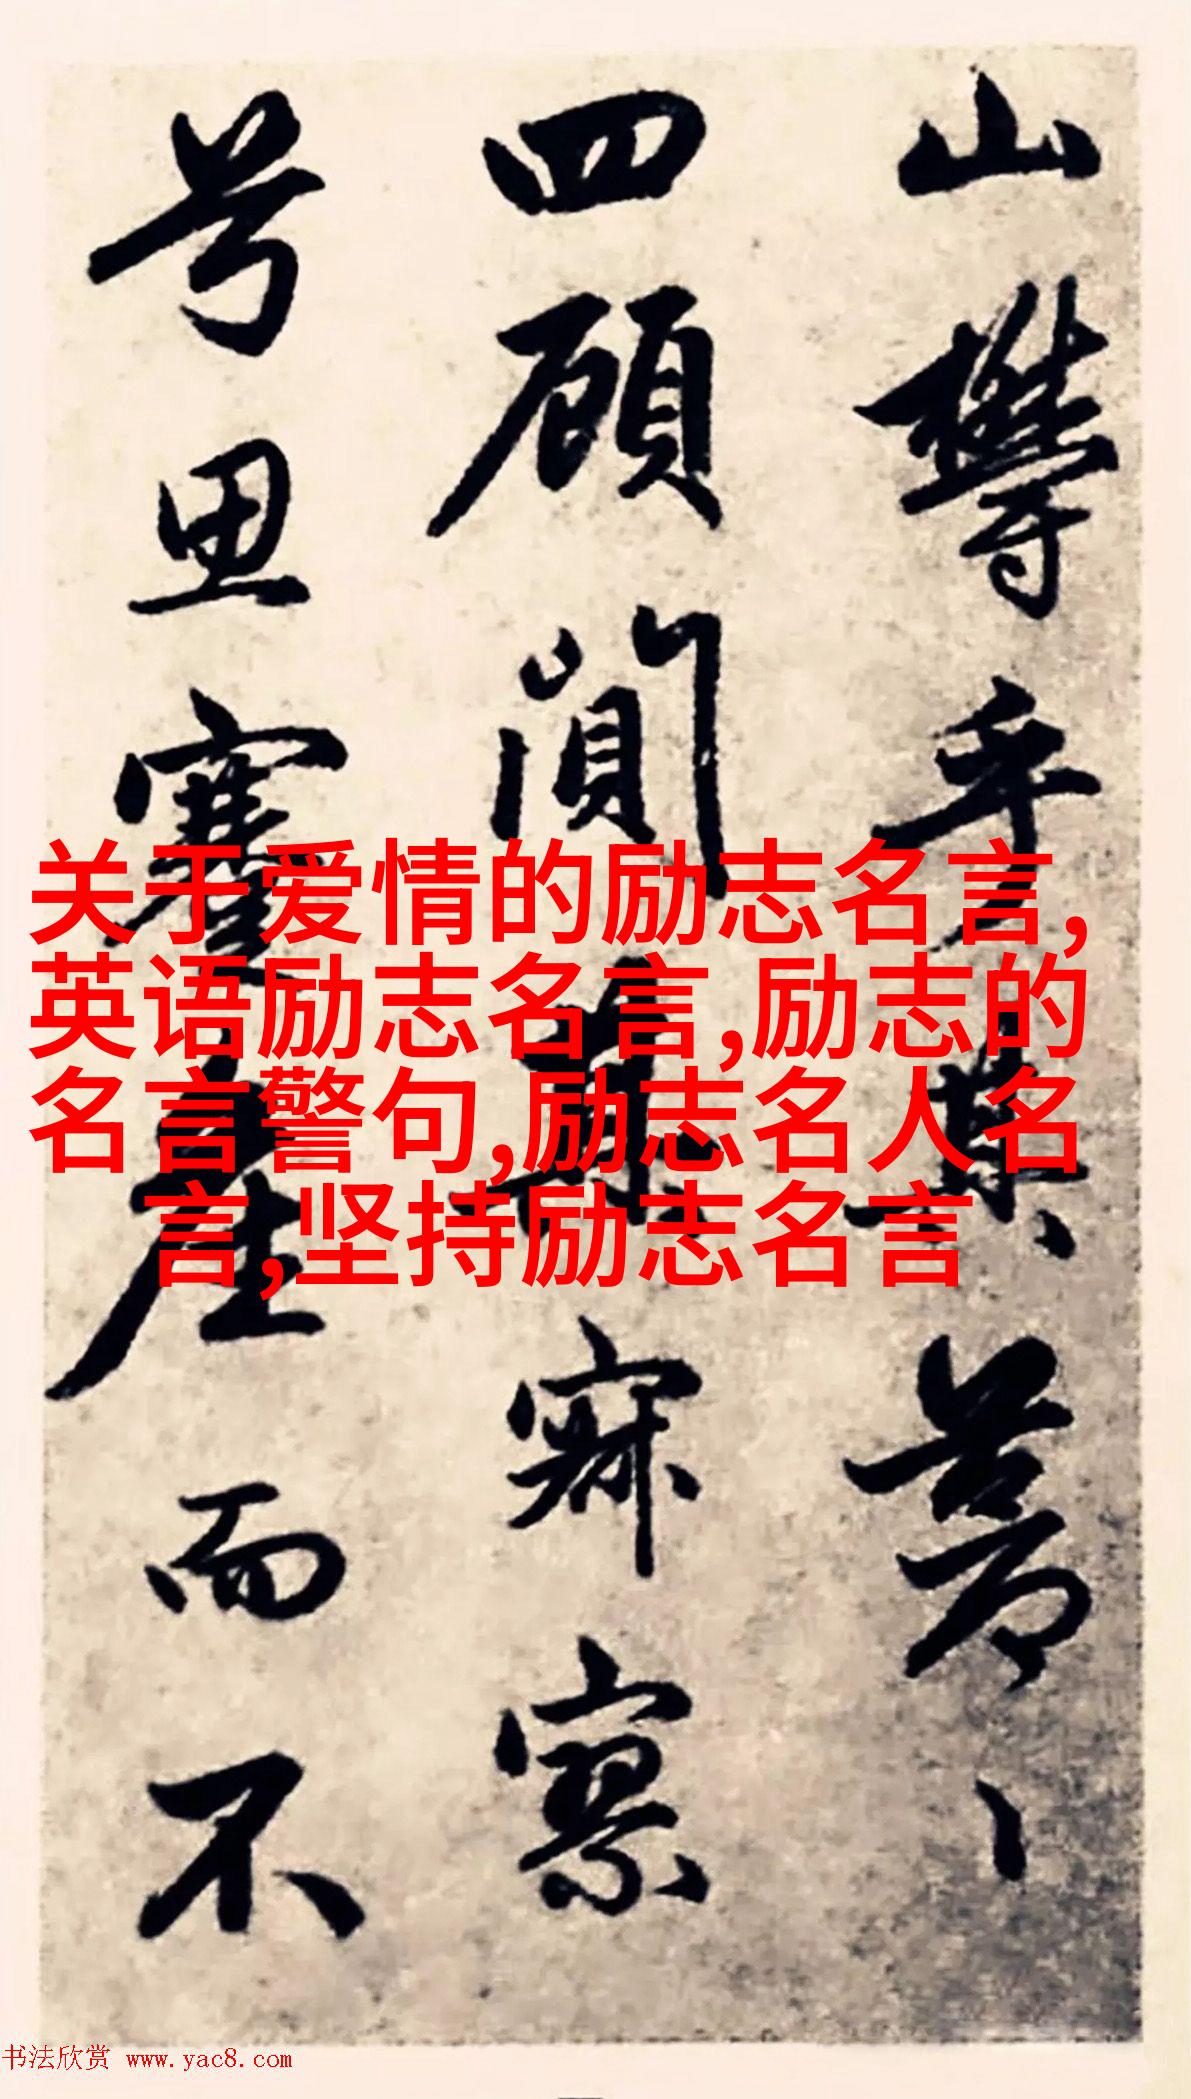 山礬乎其芳、
四顧闃兮寂寥
号思蹇產而不
关于爱情的励志名言,
英语励志名言,励志的
名言警句,励志名人名
言,坚持励志名言
书法欣赏 www.yac8.com